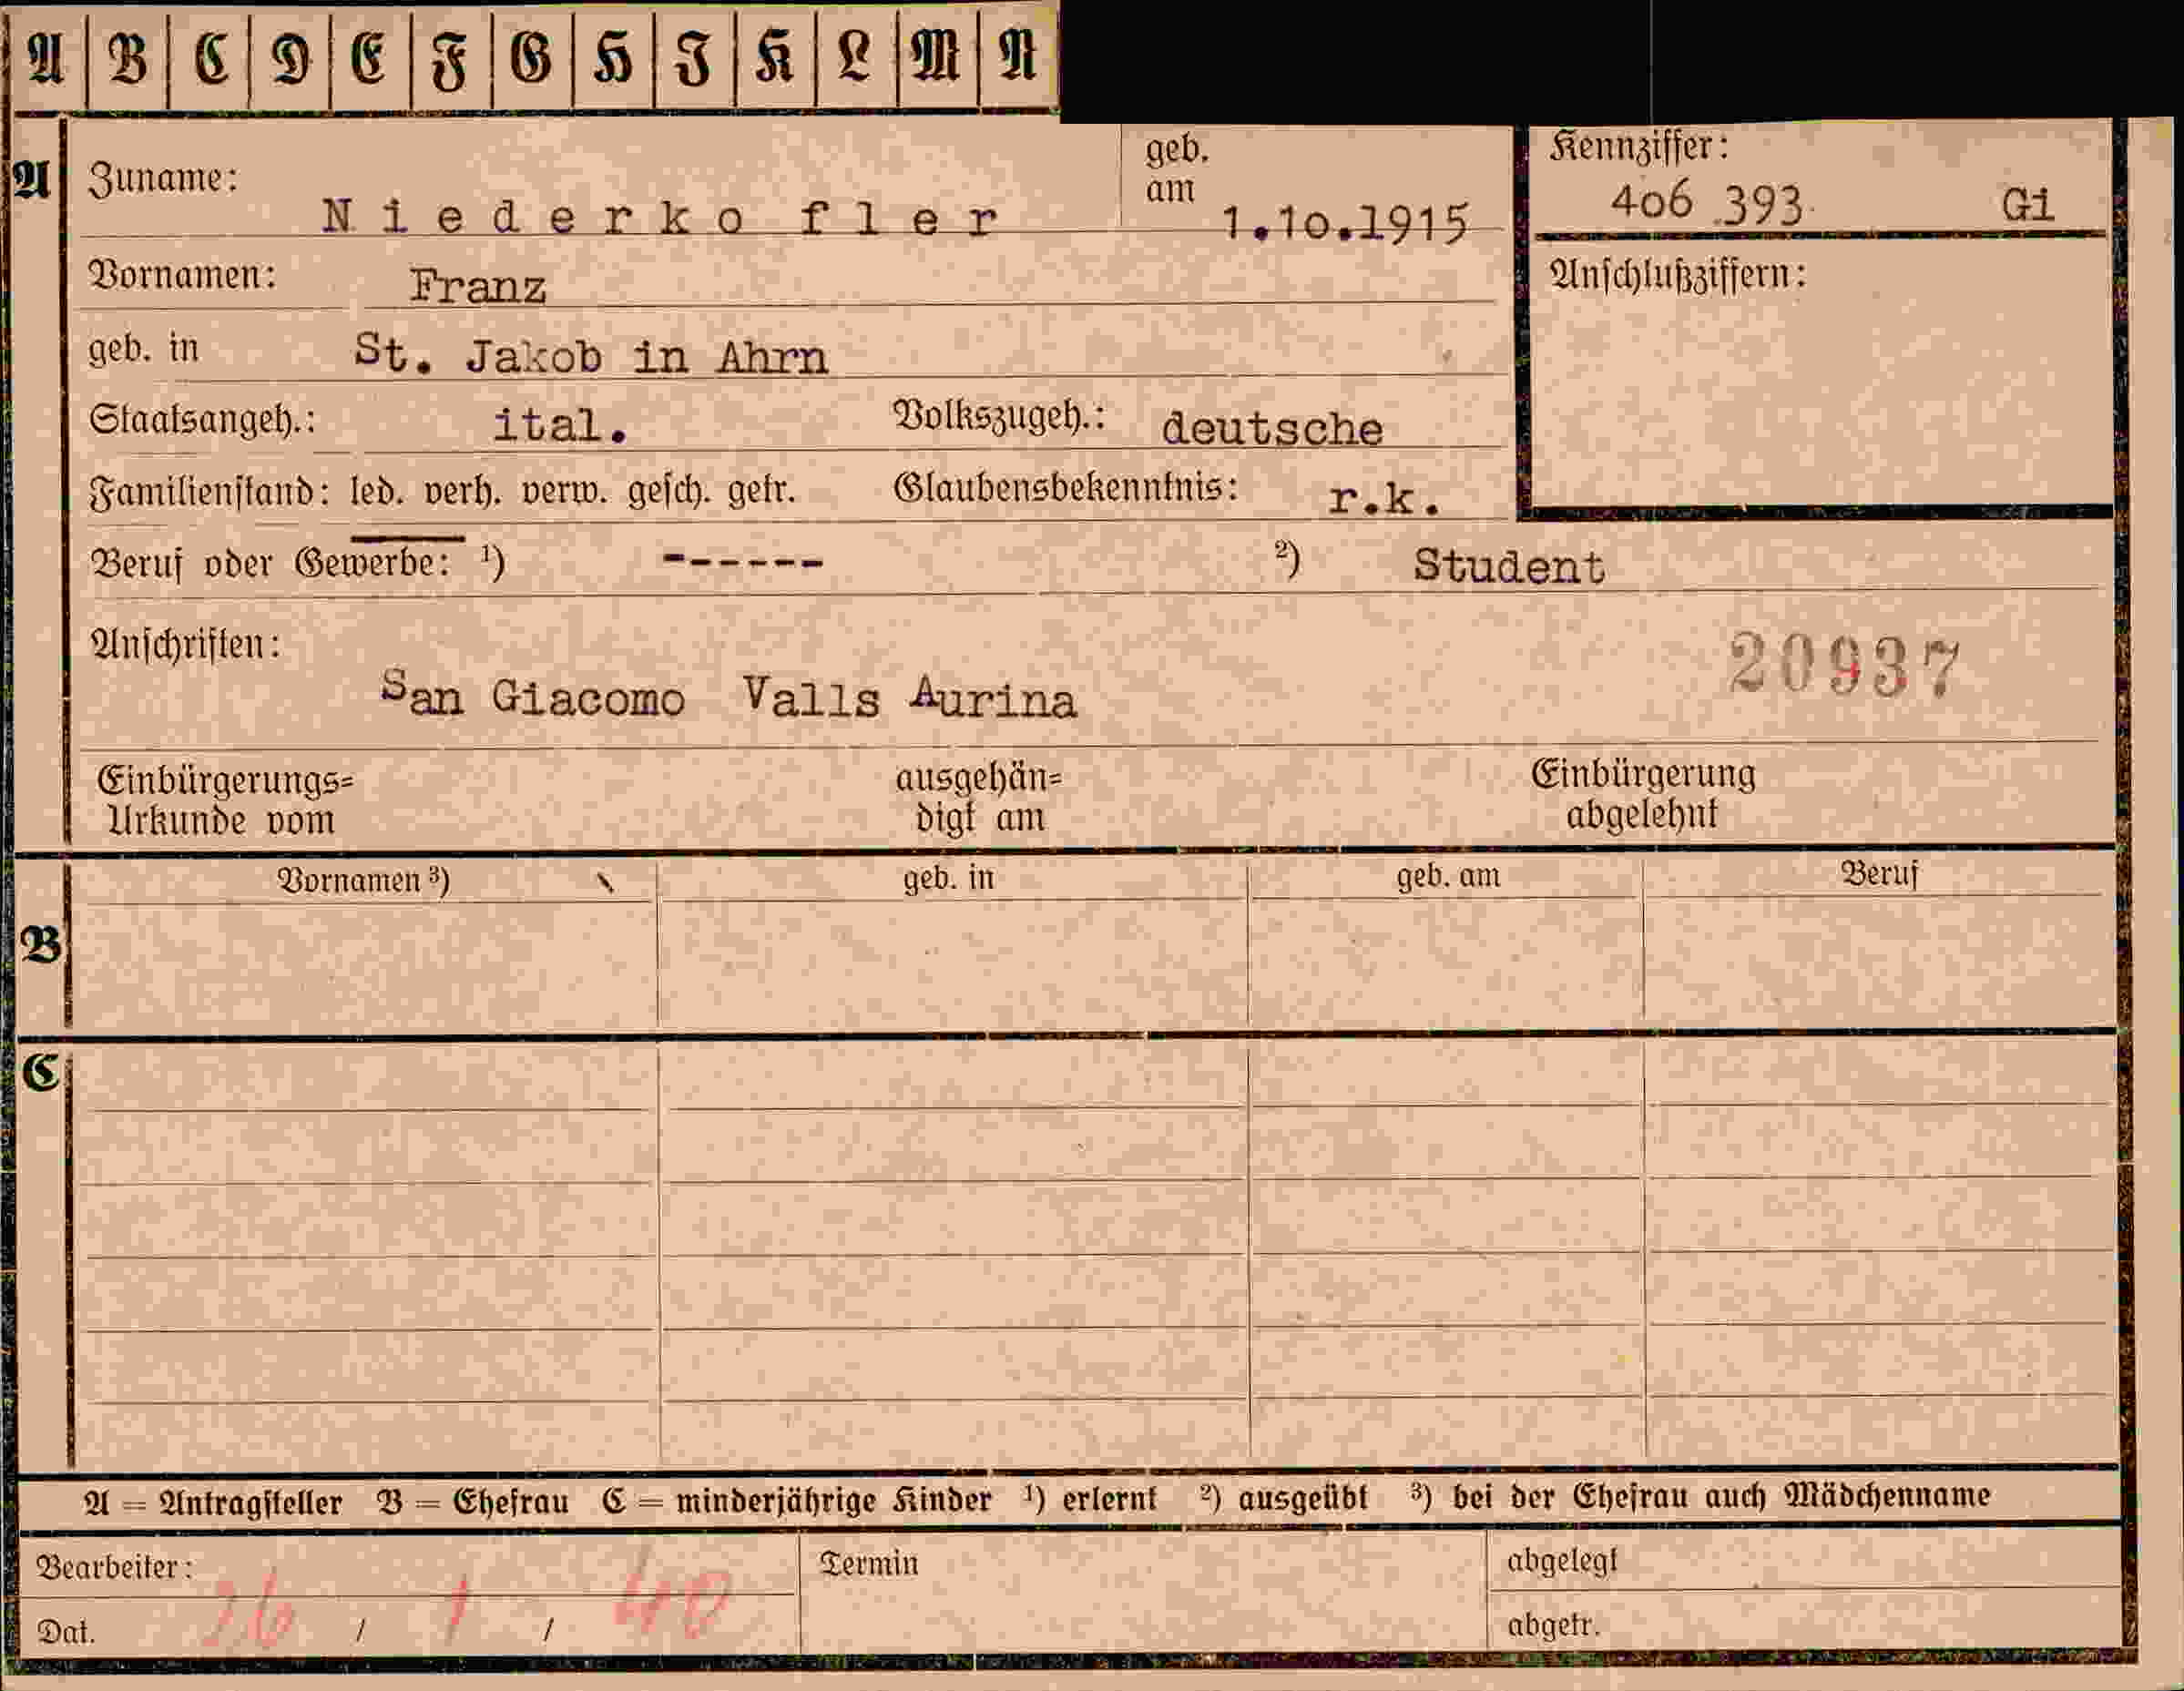 A B C D E F G H I K L M N
A Zuname: Niederkofler geb. am 1.10.1915 Kennziffer: 406 393 Gi
Vornamen: Franz Anschlußziffern:
geb. in St. Jakob in Ahrn
Staatsangeh.: ital. Volkszugeh.: deutsche
Familienstand: led. verh. verw. gesch. getr. Glaubensbekenntnis: r.k.
Beruf oder Gewerbe: ¹) ------ ²) Student
Anschriften: 20937
San Giacomo Valls Aurina
Einbürgerungs= ausgehän= Einbürgerung
Urkunde vom digt am abgelehnt
Vornamen ³) geb. in geb. am Beruf
B
C
A = Antragsteller B = Ehefrau C = minderjährige Kinder ¹) erlernt ²) ausgeübt ³) bei der Ehefrau auch Mädchenname
Bearbeiter: Termin abgelegt
Dat. / 1 / 40 abgetr.